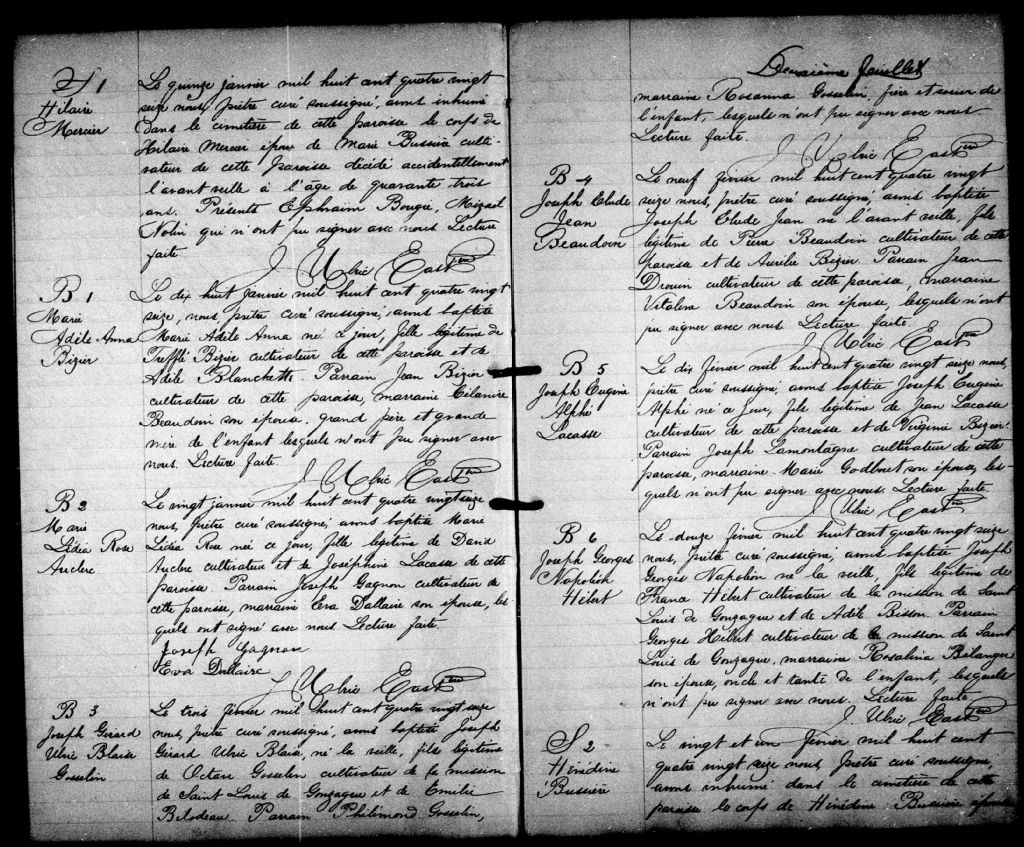 S 1
Hilaire
Mercier
Le quinze janvier mil huit cent quatre vingt
seize nous, prêtre curé soussigné, avons inhumé
dans le cimetière de cette paroisse le corps de
Hilaire Mercier époux de Marie Bussière culti-
vateur de cette paroisse décédé accidentellement
l'avant veille à l'âge de quarante trois
ans. Présents Ephraim Bougie, Mizael
Nolin qui n'ont pu signer avec nous Lecture
faite.
J Ulric East Ptre
B 1
Marie
Adèle Anna
Bizier
Le dix huit janvier mil huit cent quatre vingt
seize, nous, prêtre curé soussigné, avons baptisé
Marie Adèle Anna née ce jour, fille légitime de
Trefflé Bizier cultivateur de cette paroisse et de
Adèle Blanchette. Parrain Jean Bizier
cultivateur de cette paroisse, marraine Célanire
Beaudoin son épouse, grand père et grande
mère de l'enfant lesquels n'ont pu signer avec
nous. Lecture faite.
J Ulric East Ptre
B 2
Marie
Lédia Rose
Auclerc
Le vingt janvier mil huit cent quatre vingt seize
nous, prêtre curé soussigné, avons baptisé Marie
Lédia Rose née ce jour, fille légitime de David
Auclerc cultivateur et de Joséphine Lacasse de cette
paroisse. Parrain Joseph Gagnon cultivateur de
cette paroisse, marraine Eva Dallaire son épouse, les
quels ont signé avec nous Lecture faite.
Joseph Gagnon
Eva Dallaire
J Ulric East Ptre
B 3
Joseph Gérard
Ulric Blaise
Gosselin
Le trois février mil huit cent quatre vingt seize
nous, prêtre curé soussigné, avons baptisé Joseph
Gérard Ulric Blaise, né la veille, fils légitime
de Octave Gosselin cultivateur de la mission
de Saint Louis de Gonzague et de Emélie
Bilodeau. Parrain Philémond Gosselin,
Deuxième feuillet
marraine Rosanna Gosselin, frère et soeur de
l'enfant, lesquels n'ont pu signer avec nous.
Lecture faite.
J Ulric East Ptre
B 4
Joseph Elude
Jean
Beaudoin
Le neuf février mil huit cent quatre vingt
seize nous, prêtre curé soussigné, avons baptisé
Joseph Elude Jean né l'avant veille, fils
légitime de Pierre Beaudoin cultivateur de cette
paroisse et de Aurélie Bizier. Parrain Jean
Drouin cultivateur de cette paroisse, marraine
Vitaline Beaudoin son épouse, lesquels n'ont
pu signer avec nous Lecture faite.
J Ulric East Ptre
B 5
Joseph Eugène
Alphé
Lacasse
Le dix février mil huit cent quatre vingt seize nous,
prêtre curé soussigné, avons baptisé Joseph Eugène
Alphé né ce jour, fils légitime de Jean Lacasse
cultivateur de cette paroisse et de Virginie Bizier.
Parrain Joseph Lamontagne cultivateur de cette
paroisse, marraine Marie Godbout son épouse, les-
quels n'ont pu signer avec nous. Lecture faite
J Ulric East Ptre
B 6
Joseph Georges
Napoléon
Hébert
Le douze février mil huit cent quatre vingt seize
nous, prêtre curé soussigné, avons baptisé Joseph
Georges Napoléon né la veille, fils légitime de
France Hébert cultivateur de la mission de Saint
Louis de Gonzague et de Adèle Bisson. Parrain
Georges Hébert cultivateur de la mission de Saint
Louis de Gonzague, marraine Rosalina Bélanger
son épouse, oncle et tante de l'enfant, lesquels
n'ont pu signer avec nous. Lecture faite
J Ulric East Ptre
S 2
Hénédine
Bussière
Le vingt et un février mil huit cent
quatre vingt seize nous, prêtre curé soussigné,
avons inhumé dans le cimetière de cette
paroisse le corps de Hénédine Bussière épouse